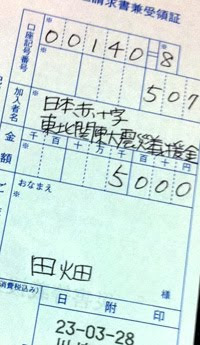 請求書兼受領証
口座記号番号
00140-8
507
加入者名
日本赤十字
東北関東大震災義援金
金額
千百十万千百十円
5000
おなまえ
田畑
様
(消費税込み)
日附印
23-03-28